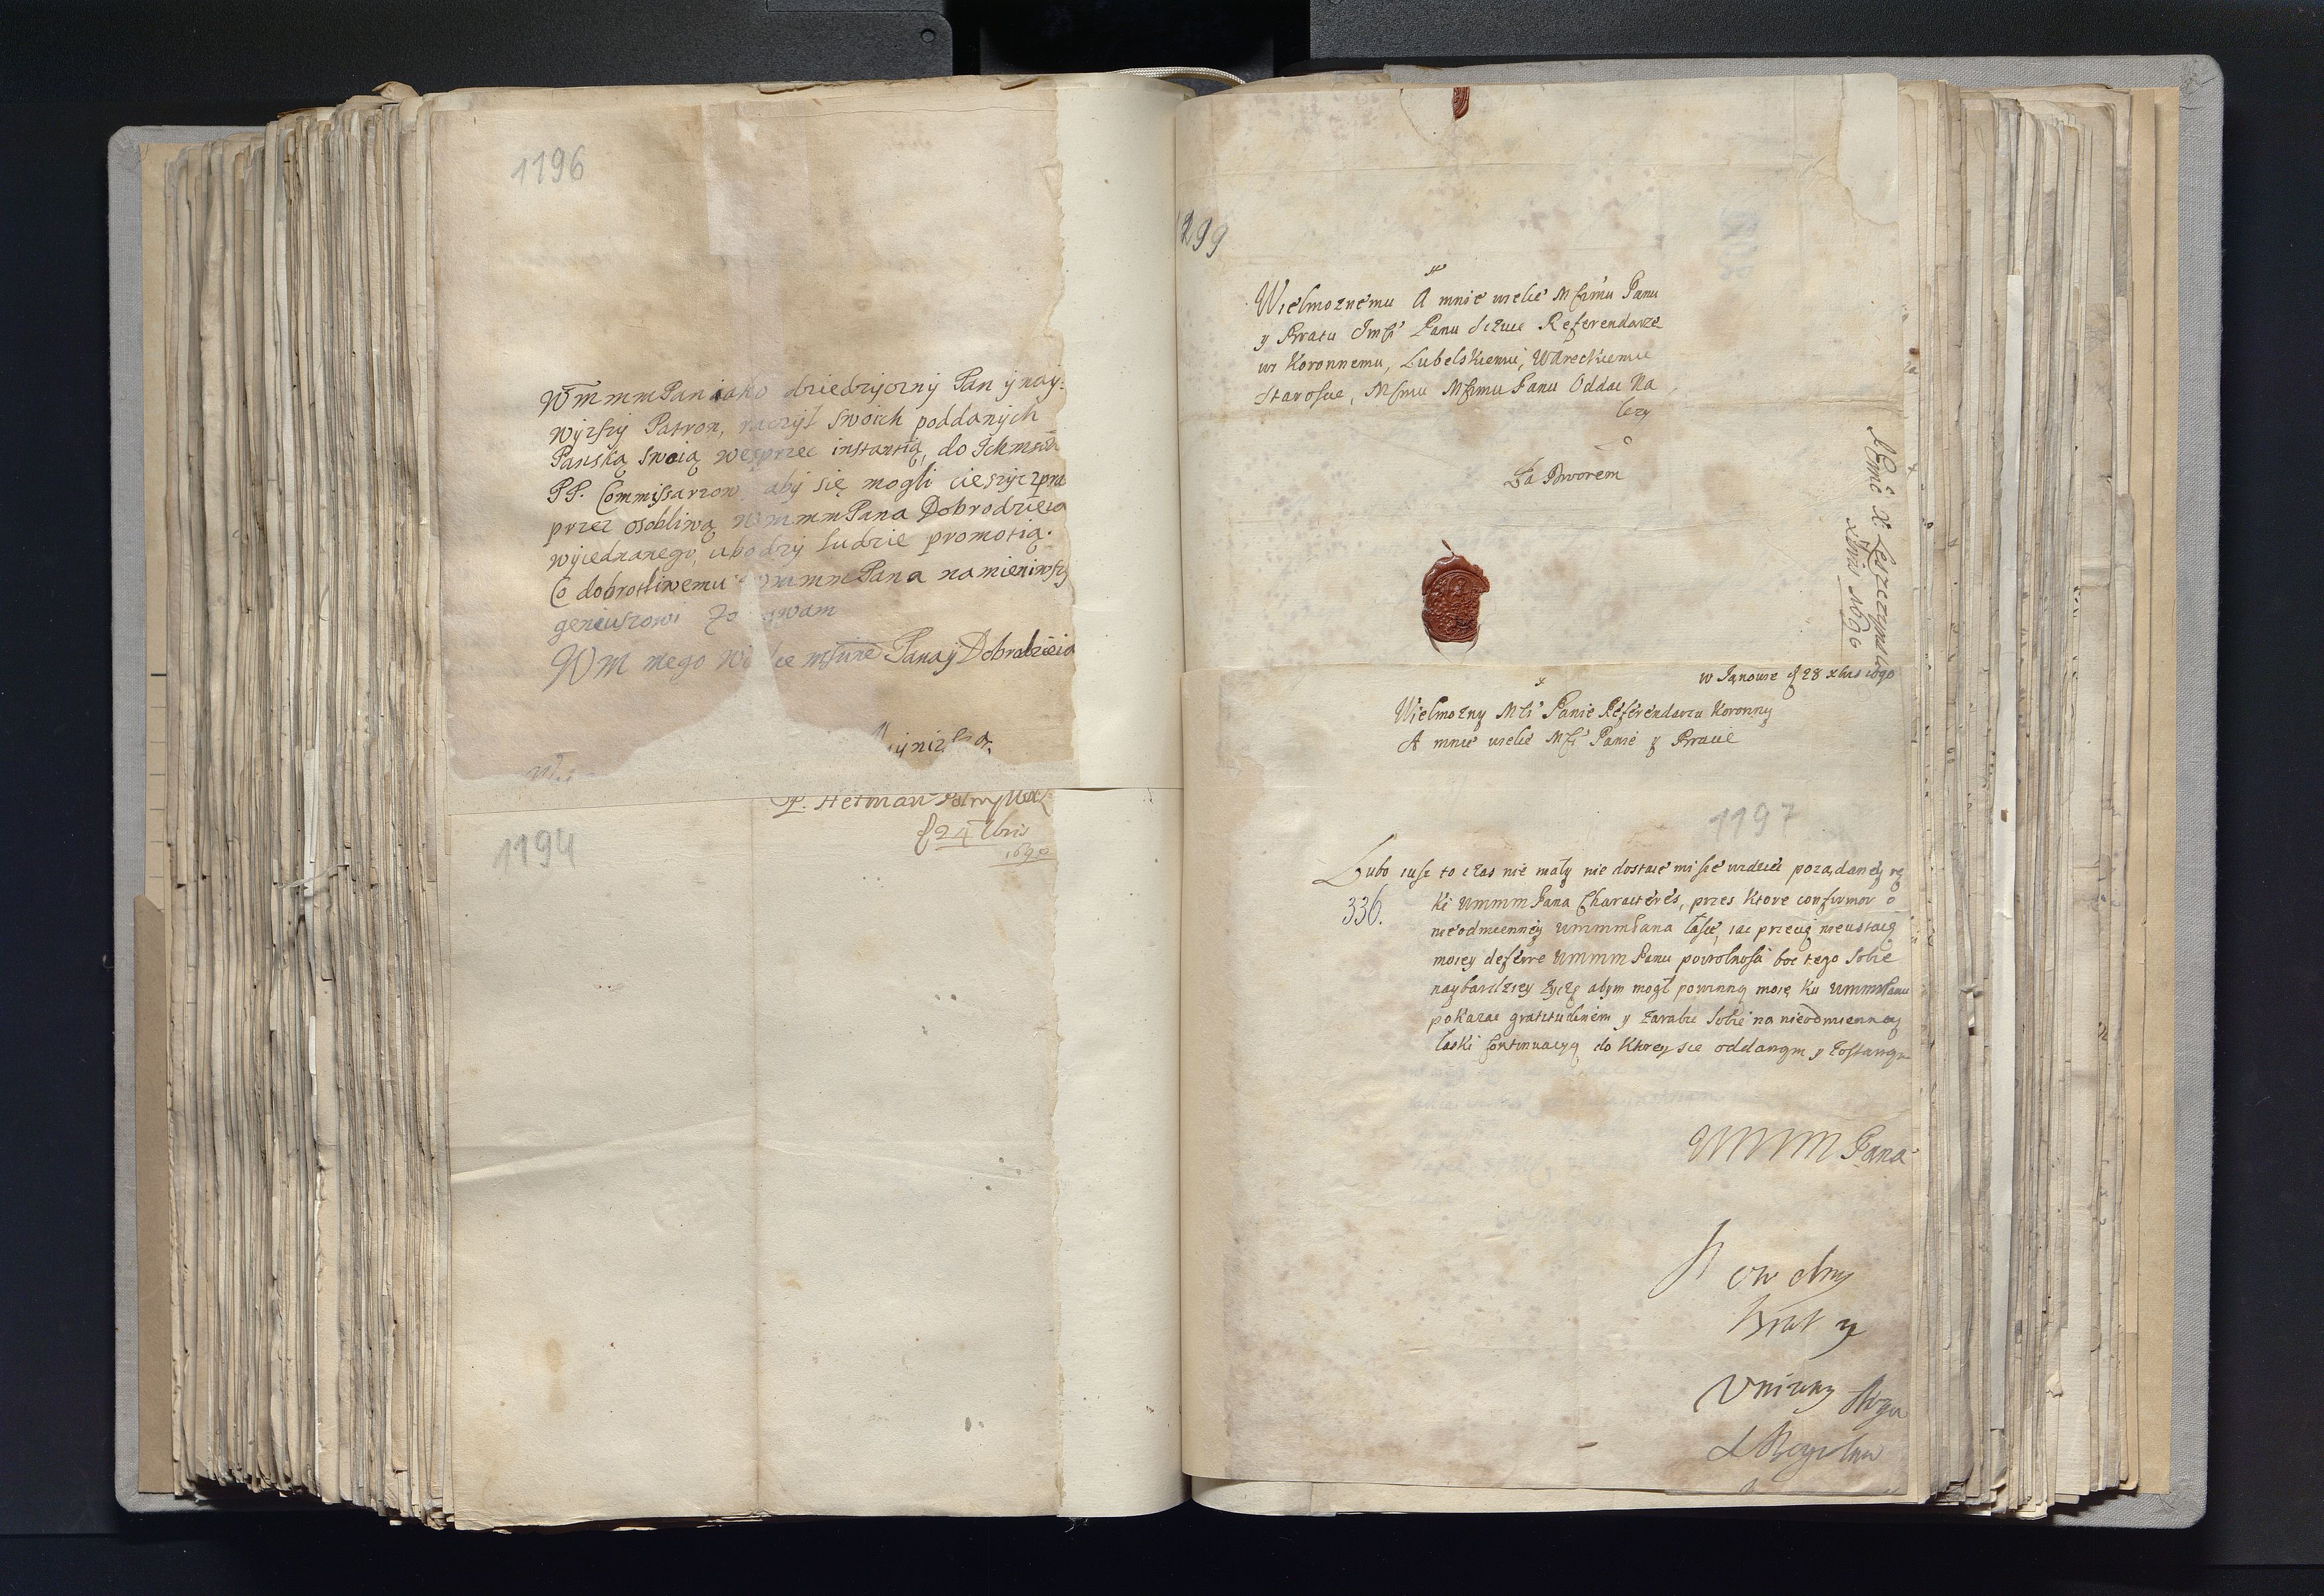 1196
WmmmPan iako dziedzyczny Pan y nay:
wyzszy Patron, raczył swoich poddanych
Panską swoią wesprzec instantią, do Ichmsciow
PP. Commissarzow aby się mogli cieszyc z pra
przez osobliwą WmmmPana Dobrodzieia
wyiednanego, ubodzy ludzie promotią.
Co dobrotliwemu WmmmPana namieniwszy
geniuszowi zostawam
WM mego Wielce Pana y Dobrodzieia
P. Herman Polny
24
1690
1194
299
Wielmoznemu A mnie wielce Panu
y Bratu Panu Referendarzo
wi Koronnemu, Lubelskiemu, Wareckiemu
Staroscie, Panu Oddac Na
lezy
Za Dworem
X: Leszczynski
Xbris 1690
w Janowie d 28 xbris 1690
Wielmozny Panie Referendarzu Koronny
A mnie wielce Panie y Bracie
1197
Lubo iusz to czas nie mały nie dostaie mi sie widziec poządaney rę
336.
ki WmmmPana Characteres, przes Ktore confirmor o
nieodmienney WmmmPana łasce, iac przecię nieustaię
moiey deferre WmmmPanu powolnosci boc tego sobie
naybardziey zyczę abym mogł powinną moię Ku WmmmPanu
pokazac gratitudinem y zarabic sobie na nieodmienney
łaski continuacyą do Ktorey sie oddawszy y zostawam
WMMM Pana
Powolny
Brat y
Unizony sługa